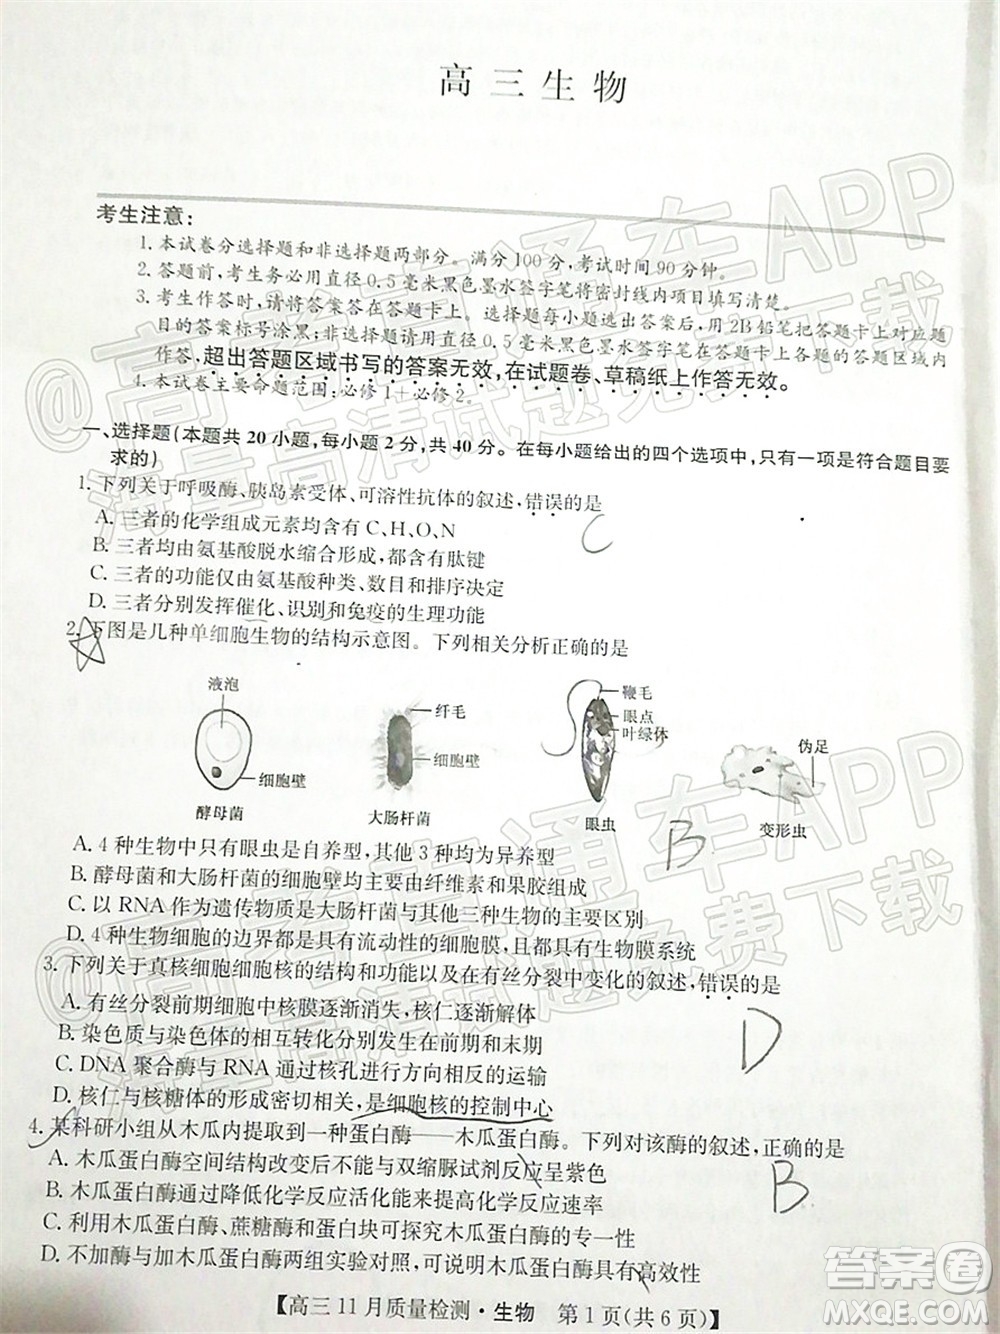 高三生物
考生注意:
1. 本试卷分选择题和非选择题两部分。满分100分,考试时间90分钟。
2. 答题前,考生务必用直径0.5毫米黑色墨水签字笔将密封线内项目填写清楚。
3. 考生作答时,请将答案答在答题卡上。选择题每小题选出答案后,用2B铅笔把答题卡上对应题
目的答案标号涂黑;非选择题请用直径0.5毫米黑色墨水签字笔在答题卡上各题的答题区域内
作答,超出答题区域书写的答案无效,在试题卷、草稿纸上作答无效。
4. 本试卷主要命题范围:必修1+必修2。
一、选择题(本题共20小题,每小题2分,共40分。在每小题给出的四个选项中,只有一项是符合题目要
求的)
1. 下列关于呼吸酶、胰岛素受体、可溶性抗体的叙述,错误的是
C
A. 三者的化学组成元素均含有C、H、O、N
B. 三者均由氨基酸脱水缩合形成,都含有肽键
C. 三者的功能仅由氨基酸种类、数目和排序决定
D. 三者分别发挥催化、识别和免疫的生理功能
2. 下图是几种单细胞生物的结构示意图。下列相关分析正确的是
液泡
细胞壁
酵母菌
纤毛
细胞壁
大肠杆菌
鞭毛
眼点
叶绿体
眼虫
伪足
变形虫
B
A. 4种生物中只有眼虫是自养型,其他3种均为异养型
B. 酵母菌和大肠杆菌的细胞壁均主要由纤维素和果胶组成
C. 以RNA作为遗传物质是大肠杆菌与其他三种生物的主要区别
D. 4种生物细胞的边界都是具有流动性的细胞膜,且都具有生物膜系统
3. 下列关于真核细胞细胞核的结构和功能以及在有丝分裂中变化的叙述,错误的是
D
A. 有丝分裂前期细胞中核膜逐渐消失,核仁逐渐解体
B. 染色质与染色体的相互转化分别发生在前期和末期
C. DNA聚合酶与RNA通过核孔进行相反的运输
D. 核仁与核糖体的形成密切相关,是细胞核的控制中心
4. 某科研小组从木瓜内提取到一种蛋白酶——木瓜蛋白酶。下列对该酶的叙述,正确的是
B
A. 木瓜蛋白酶空间结构改变后不能与双缩脲试剂反应呈紫色
B. 木瓜蛋白酶通过降低化学反应活化能来提高化学反应速率
C. 利用木瓜蛋白酶、蔗糖酶和蛋白块可探究木瓜蛋白酶的专一性
D. 不加酶与加木瓜蛋白酶两组实验对照,可说明木瓜蛋白酶具有高效性
【高三11月质量检测·生物 第1页(共6页)】
@高考直通车APP
海量高清试题免费下载
@高考直通车APP
海量高清试题免费下载
答案圈
MXQE.COM